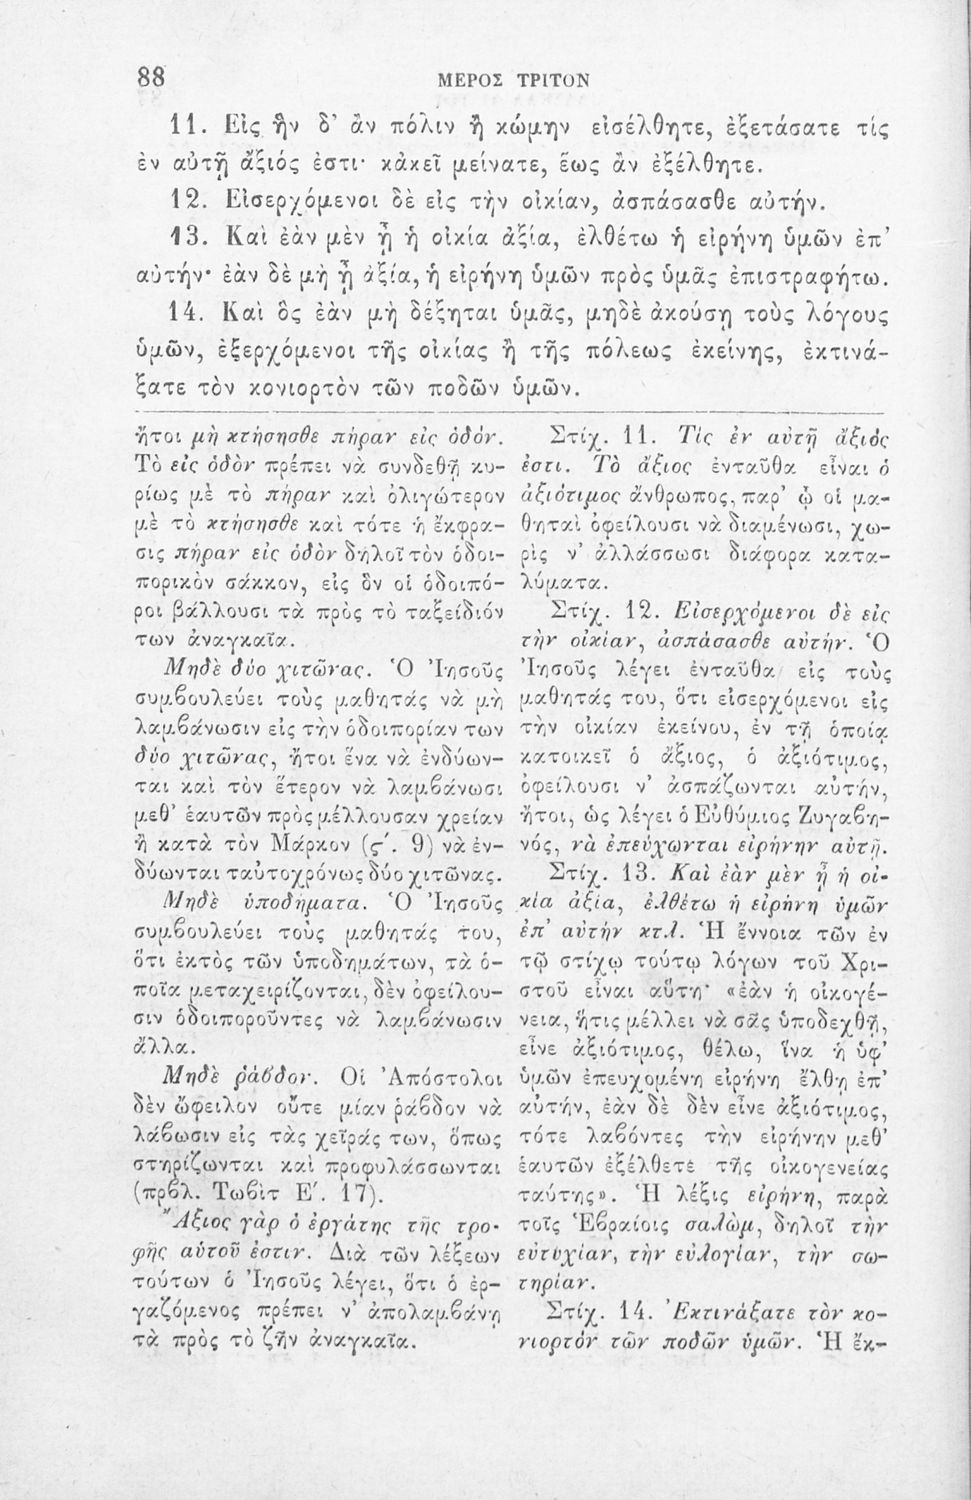 88
ΜΕΡΟΣ ΤΡΙΤΟΝ
11. Εἰς ἣν δ' ἂν πόλιν ἢ κώμην εἰσέλθητε, ἐξετάσατε τίς
ἐν αὐτῇ ἄξιός ἐστι· κἀκεῖ μείνατε, ἕως ἂν ἐξέλθητε.
12. Εἰσερχόμενοι δὲ εἰς τὴν οἰκίαν, ἀσπάσασθε αὐτήν.
13. Καὶ ἐὰν μὲν ᾖ ἡ οἰκία ἀξία, ἐλθέτω ἡ εἰρήνη ὑμῶν ἐπ'
αὐτήν· ἐὰν δὲ μὴ ᾖ ἀξία, ἡ εἰρήνη ὑμῶν πρὸς ὑμᾶς ἐπιστραφήτω.
14. Καὶ ὃς ἐὰν μὴ δέξηται ὑμᾶς, μηδὲ ἀκούσῃ τοὺς λόγους
ὑμῶν, ἐξερχόμενοι τῆς οἰκίας ἢ τῆς πόλεως ἐκείνης, ἐκτινά-
ξατε τὸν κονιορτὸν τῶν ποδῶν ὑμῶν.
ἤτοι μὴ κτήσησθε πήραν εἰς ὁδόν.
Τὸ εἰς ὁδὸν πρέπει νὰ συνδεθῇ κυ-
ρίως μὲ τὸ πήραν καὶ ὀλιγώτερον
μὲ τὸ κτήσησθε καὶ τότε ἡ ἔκφρα-
σις πήραν εἰς ὁδὸν δηλοῖ τὸν ὁδοι-
πορικὸν σάκκον, εἰς ὃν οἱ ὁδοιπό-
ροι βάλλουσι τὰ πρὸς τὸ ταξείδιόν
των ἀναγκαῖα.
Μηδὲ δύο χιτῶνας. Ὁ Ἰησοῦς
συμβουλεύει τοὺς μαθητάς νὰ μὴ
λαμβάνωσιν εἰς τὴν ὁδοιπορίαν των
δύο χιτῶνας, ἤτοι ἕνα νὰ ἐνδύων-
ται καὶ τὸν ἕτερον νὰ λαμβάνωσι
μεθ' ἑαυτῶν πρὸς μέλλουσαν χρείαν
ἢ κατὰ τὸν Μάρκον (ς'. 9) νὰ ἐν-
δύωνται ταὐτοχρόνως δύο χιτῶνας.
Μηδὲ ὑποδήματα. Ὁ Ἰησοῦς
συμβουλεύει τοὺς μαθητάς του,
ὅτι ἐκτὸς τῶν ὑποδημάτων, τὰ ὁ-
ποῖα μεταχειρίζονται, δὲν ὀφείλου-
σιν ὁδοιποροῦντες νὰ λαμβάνωσιν
ἄλλα.
Μηδὲ ῥάβδον. Οἱ Ἀπόστολοι
δὲν ὤφειλον οὔτε μίαν ῥάβδον νὰ
λάβωσιν εἰς τὰς χεῖράς των, ὅπως
στηρίζωνται καὶ προφυλάσσωνται
(πρβλ. Τωβὶτ Ε'. 17).
Ἄξιος γὰρ ὁ ἐργάτης τῆς τρο-
φῆς αὑτοῦ ἐστιν. Διὰ τῶν λέξεων
τούτων ὁ Ἰησοῦς λέγει, ὅτι ὁ ἐρ-
γαζόμενος πρέπει ν' ἀπολαμβάνῃ
τὰ πρὸς τὸ ζῆν ἀναγκαῖα.
Στίχ. 11. Τίς ἐν αὐτῇ ἄξιός
ἐστι. Τὸ ἄξιος ἐνταῦθα εἶναι ὁ
ἀξιότιμος ἄνθρωπος, παρ' ᾧ οἱ μα-
θηταὶ ὀφείλουσι νὰ διαμένωσι, χω-
ρὶς ν' ἀλλάσσωσι διάφορα κατα-
λύματα.
Στίχ. 12. Εἰσερχόμενοι δὲ εἰς
τὴν οἰκίαν, ἀσπάσασθε αὐτήν. Ὁ
Ἰησοῦς λέγει ἐνταῦθα εἰς τοὺς
μαθητάς του, ὅτι εἰσερχόμενοι εἰς
τὴν οἰκίαν ἐκείνου, ἐν τῇ ὁποίᾳ
κατοικεῖ ὁ ἄξιος, ὁ ἀξιότιμος,
ὀφείλουσι ν' ἀσπάζωνται αὐτήν,
ἤτοι, ὡς λέγει ὁ Εὐθύμιος Ζυγαβη-
νός, νὰ ἐπεύχωνται εἰρήνην αὐτῇ.
Στίχ. 13. Καὶ ἐὰν μὲν ᾖ ἡ οἰ-
κία ἀξία, ἐλθέτω ἡ εἰρήνη ὑμῶν
ἐπ' αὐτὴν κτλ. Ἡ ἔννοια τῶν ἐν
τῷ στίχῳ τούτῳ λόγων τοῦ Χρι-
στοῦ εἶναι αὕτη· «ἐὰν ἡ οἰκογέ-
νεια, ἥτις μέλλει νὰ σᾶς ὑποδεχθῇ,
εἶνε ἀξιότιμος, θέλω, ἵνα ἡ ὑφ'
ὑμῶν ἐπευχομένη εἰρήνη ἔλθῃ ἐπ'
αὐτήν, ἐὰν δὲ δὲν εἶνε ἀξιότιμος,
τότε λαβόντες τὴν εἰρήνην μεθ'
ἑαυτῶν ἐξέλθετε τῆς οἰκογενείας
ταύτης». Ἡ λέξις εἰρήνη, παρὰ
τοῖς Ἑβραίοις σαλὼμ, δηλοῖ τὴν
εὐτυχίαν, τὴν εὐλογίαν, τὴν σω-
τηρίαν.
Στίχ. 14. Ἐκτινάξατε τὸν κο-
νιορτὸν τῶν ποδῶν ὑμῶν. Ἡ ἔκ-